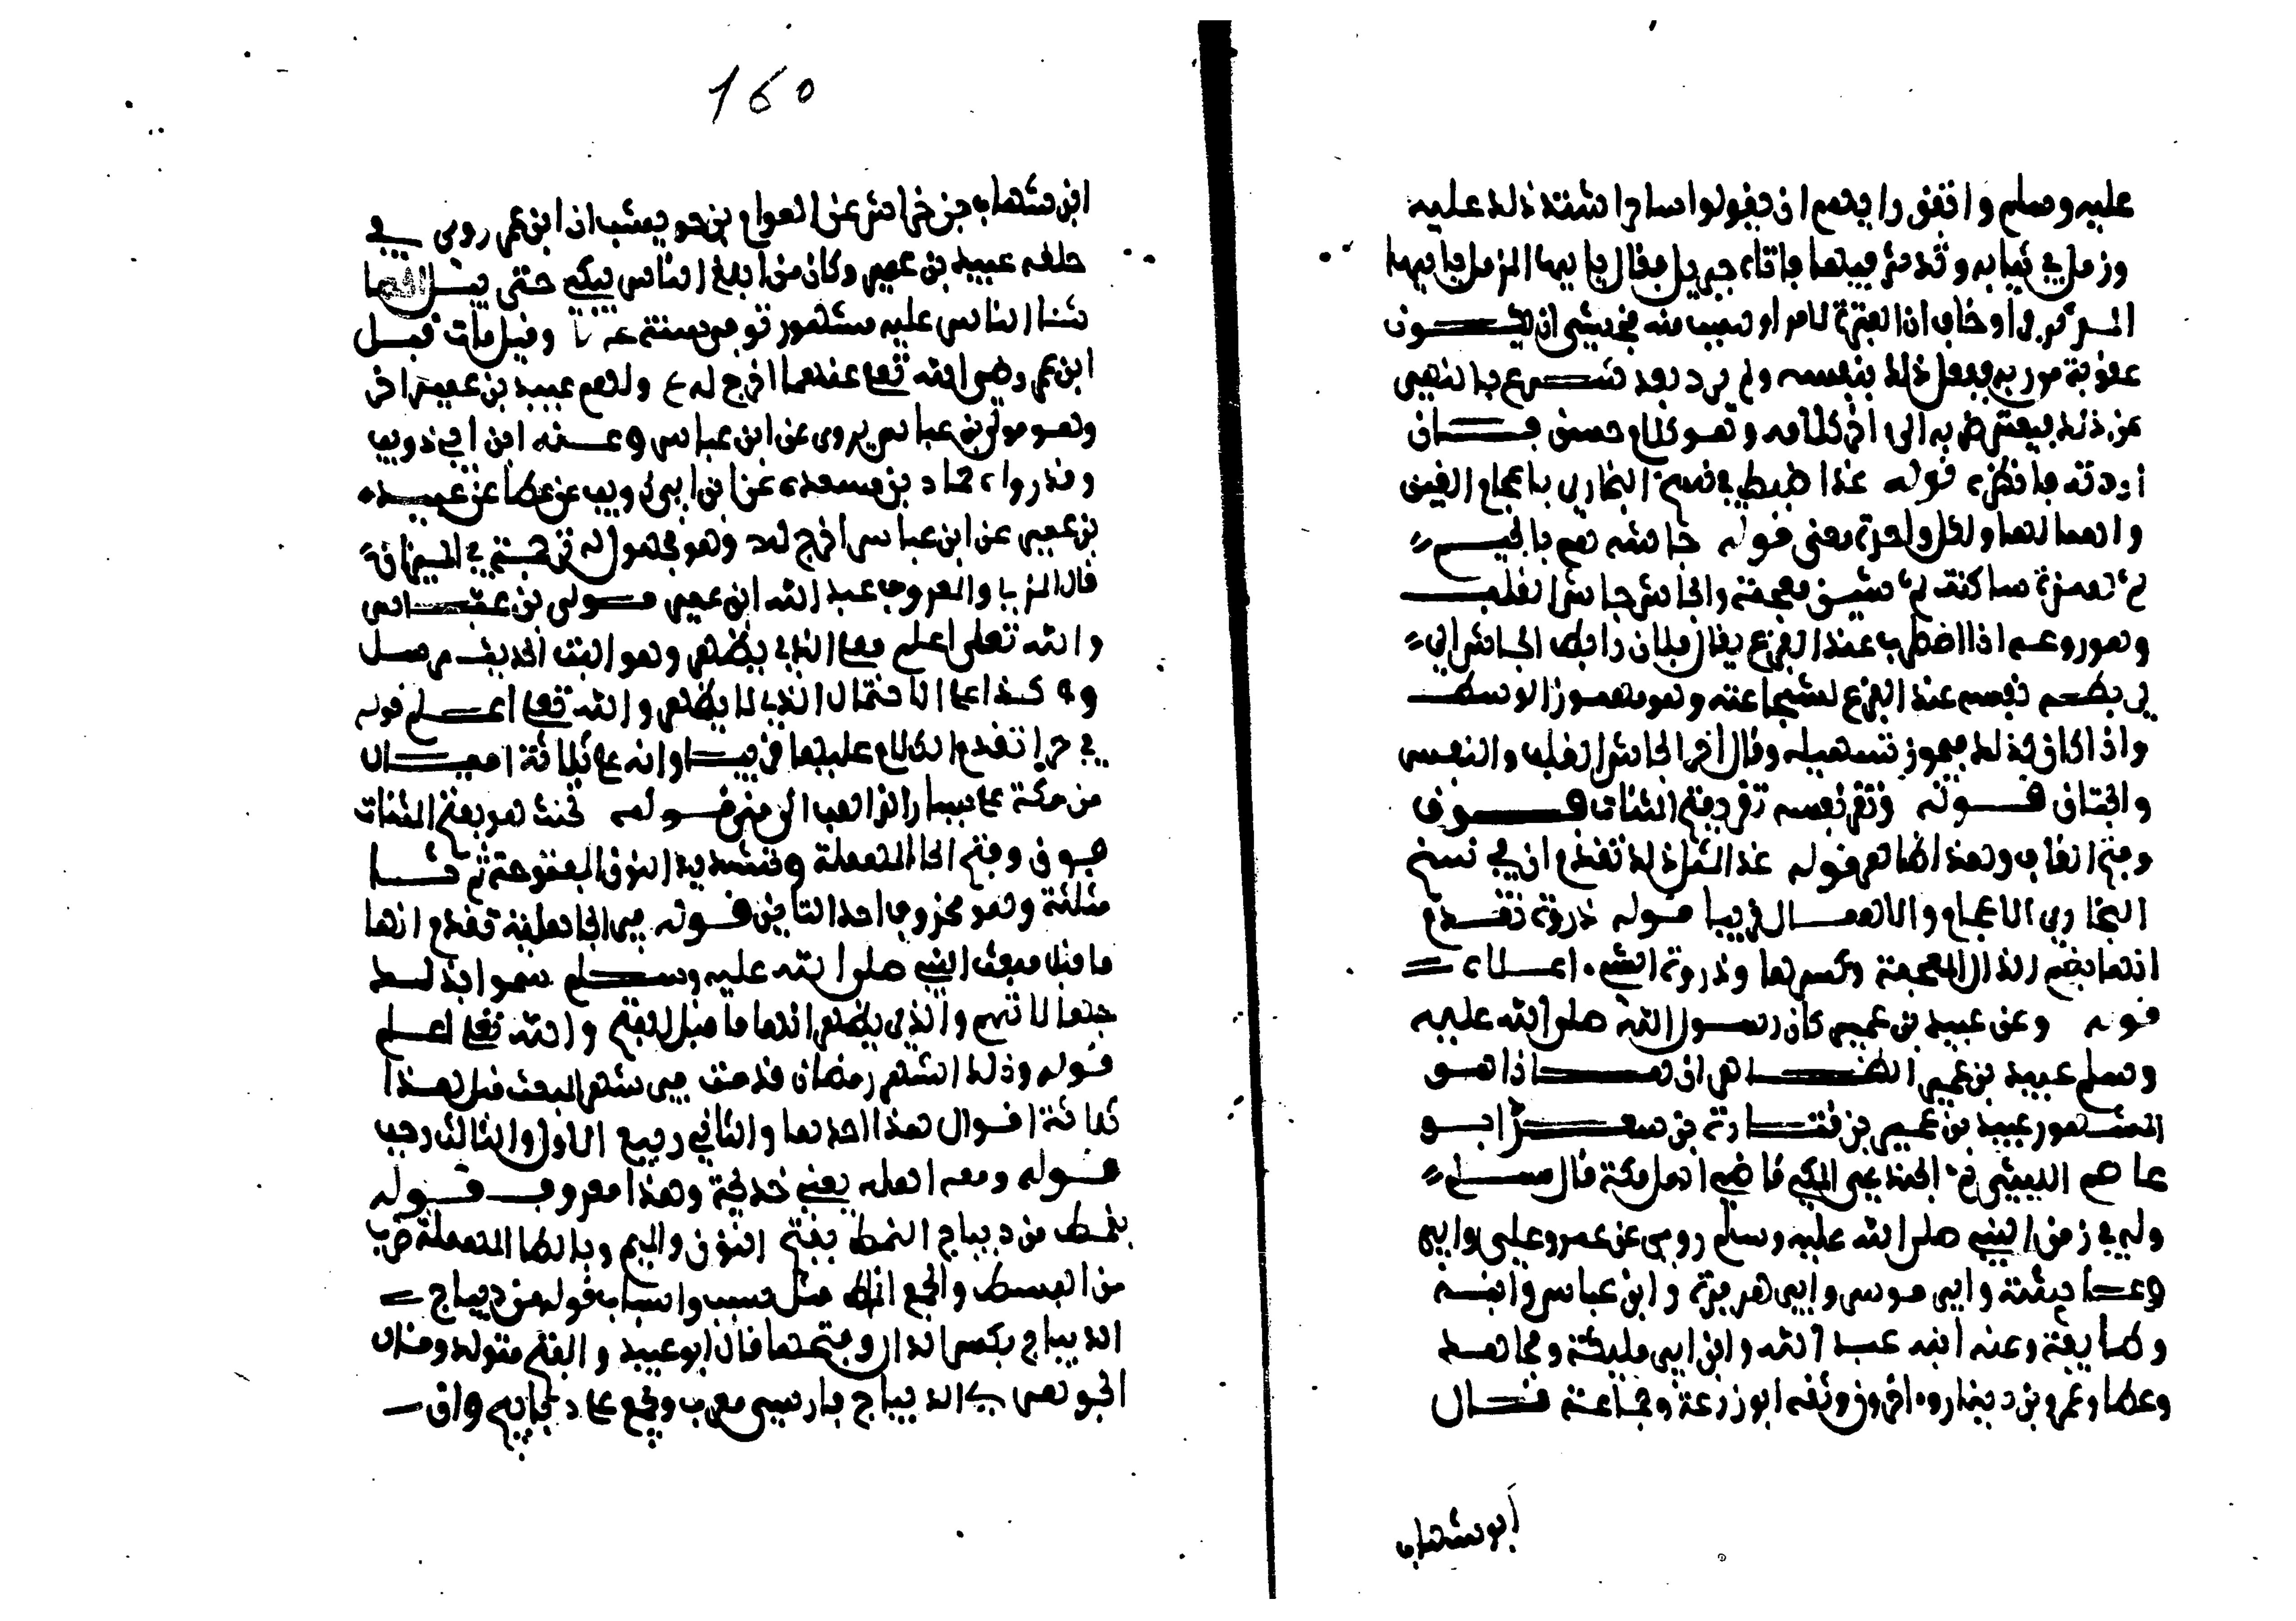 عليه وسلم واتفق رايهم ان يقولوا ساحر اشتد ذلك عليه
وزمل في ثيابه وتدثر فيها فاتاه جبريل فقال يا يها المزمل يا يها
المدثر او خاف ان الفترة لامر او سبب منه فخشي ان يكون
عقوبة من ربه ففعل ذلك بنفسه ولم يرد بعد شرع بالنهي
عن ذلك فيعترض به الى اخر كلامه وهو كلام حسن فان
اردته فانظره قوله غدا ضبط في نسخ البخاري باعجام الغين
واهمالها ولكل واحدة معنى قوله جاشه هو بالجيم
ثم همزة ساكنة ثم شين معجمة والجاش جاش القلب
وهو روعه اذا اضطرب عند الفزع يقال فلان رابط الجاش اي
يربط نفسه عند الفزع لشجاعته وهو مهموز الوسط
واذا كان كذلك فيجوز تسهيله وقال اخر الجاش القلب والنفس
والجنان قوله وتقر نفسه تقر بفتح المثناة فوق
وفتح القاف وهذا ظاهر قوله غدا لمثل ذلك تقدم ان في نسخ
البخاري الاعجام والاهمال قريبا قوله ذروة تقدم
انها بضم الذال المعجمة وكسرها وذروة الشيء اعلاه
قوله وعن عبيد بن عمير كان رسول الله صلى الله عليه
وسلم عبيد بن عمير الظاهر ان هذا هو
المشهور عبيد بن عمير بن قتادة بن سعد ابو
عاصم الليثي ثم الجندعي المكي قاضي اهل مكة قال مسلم
ولد في زمن النبي صلى الله عليه وسلم روى عن عمر وعلي وابي
وعايشة وابي موسى وابي هريرة وابن عباس وابنه
وطايفة وعنه ابنه عبد الله وابن ابي مليكة ومجاهد
وعطا وعمرو بن دينار واخرون وثقه ابو زرعة وجماعة قال
ابو شهاب
160
ابن شهاب بن خراش عن العوام بن حوشب ان ابن عمر روي في
حلقة عبيد بن عمير وكان من ابلغ الناس يبكي حتى يبل الحصا
ثنا الناس عليه مشهور توفي سنة وقيل مات قبل
ابن عمر رضي الله تعالى عنهما اخرج له ع ولهم عبيد بن عمير اخر
وهو مولى بن عباس يروي عن ابن عباس وعنه ابن ابي ذويب
وقد رواه حماد بن مسعدة عن ابن ابي ذويب عن عطا عن عبيد
بن عمير عن ابن عباس اخرج له د وهو مجهول له ترجمة في الميزان
قال المزي والمعروف عبد الله ابن عمير مولى بن عباس
والله تعلى اعلم فعلى الذي يظهر وهو الليثي الحديث مرسل
وكذا على الاحتمال الذي لا يظهر والله تعالى اعلم قوله
في حرا تقدم الكلام عليها قريبا وانه على ثلاثة اميال
من مكة على يسار الذاهب الى منى قوله تحنث هو بفتح المثناة
فوق وفتح الحا المهملة وتشديد النون المفتوحة ثم ثا
مثلثة وهو محذوف احدا التاين قوله في الجاهلية تقدم انها
ما قبل مبعث النبي صلى الله عليه وسلم سموا بذلك
جهالاتهم والذي يظهر انها ما قبل الفتح والله تعالى اعلم
قوله وذلك الشهر رمضان قدمت في شهر المبعث قبل هذا
ثلاثة اقوال هذا احدها والثاني ربيع الاول والثالث رجب
قوله ومعه اهله يعني خديجة وهذا معروف قوله
بنمط من ديباج النمط بفتح النون والميم وبالطا المهملة ضرب
من البسط والجمع انماط مثل سبب واسباب قوله من ديباج
الديباج بكسر الدال وفتحها قال ابو عبيد والفتح مولد وقال
الجوهري الديباج فارسي معرب ويجمع على ديابيج وان